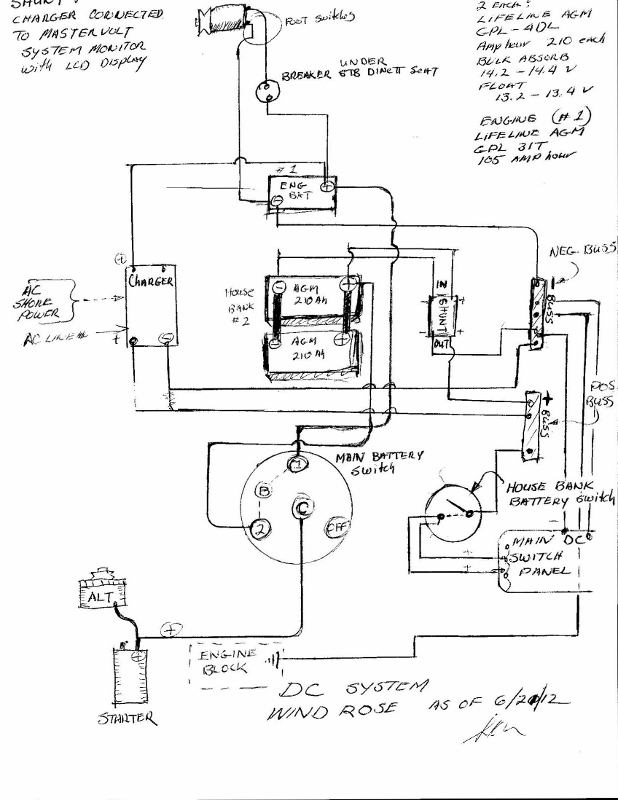 SHUNT
CHARGER CONNECTED
TO MASTERVOLT
SYSTEM MONITOR
with LCD Display
FOOT Switches
UNDER
BREAKER STB DINETT SEAT
2 Each:
LIFELINE AGM
GPL-4DL
Amp hour 210 each
BULK ABSORB
14.2 - 14.4 V
FLOAT
13.2 - 13.4 V
ENGINE (#1)
LIFELINE AGM
GPL 31T
105 AMP hour
#1
ENG
BAT
+
-
NEG. BUSS
-
BUSS
+
CHARGER
AC
SHORE
POWER
AC LINE
+
-
HOUSE
BANK
#2
- AGM +
210 Ah
- AGM +
210 Ah
IN
SHUNT
OUT
+
BUSS
POS
BUSS
MAIN BATTERY
Switch
1
B
C
2
OFF
HOUSE BANK
BATTERY Switch
MAIN DC
SWITCH
PANEL
-
+
+
ALT
+
+
STARTER
ENGINE
BLOCK
DC SYSTEM
WIND ROSE AS OF 6/20/12